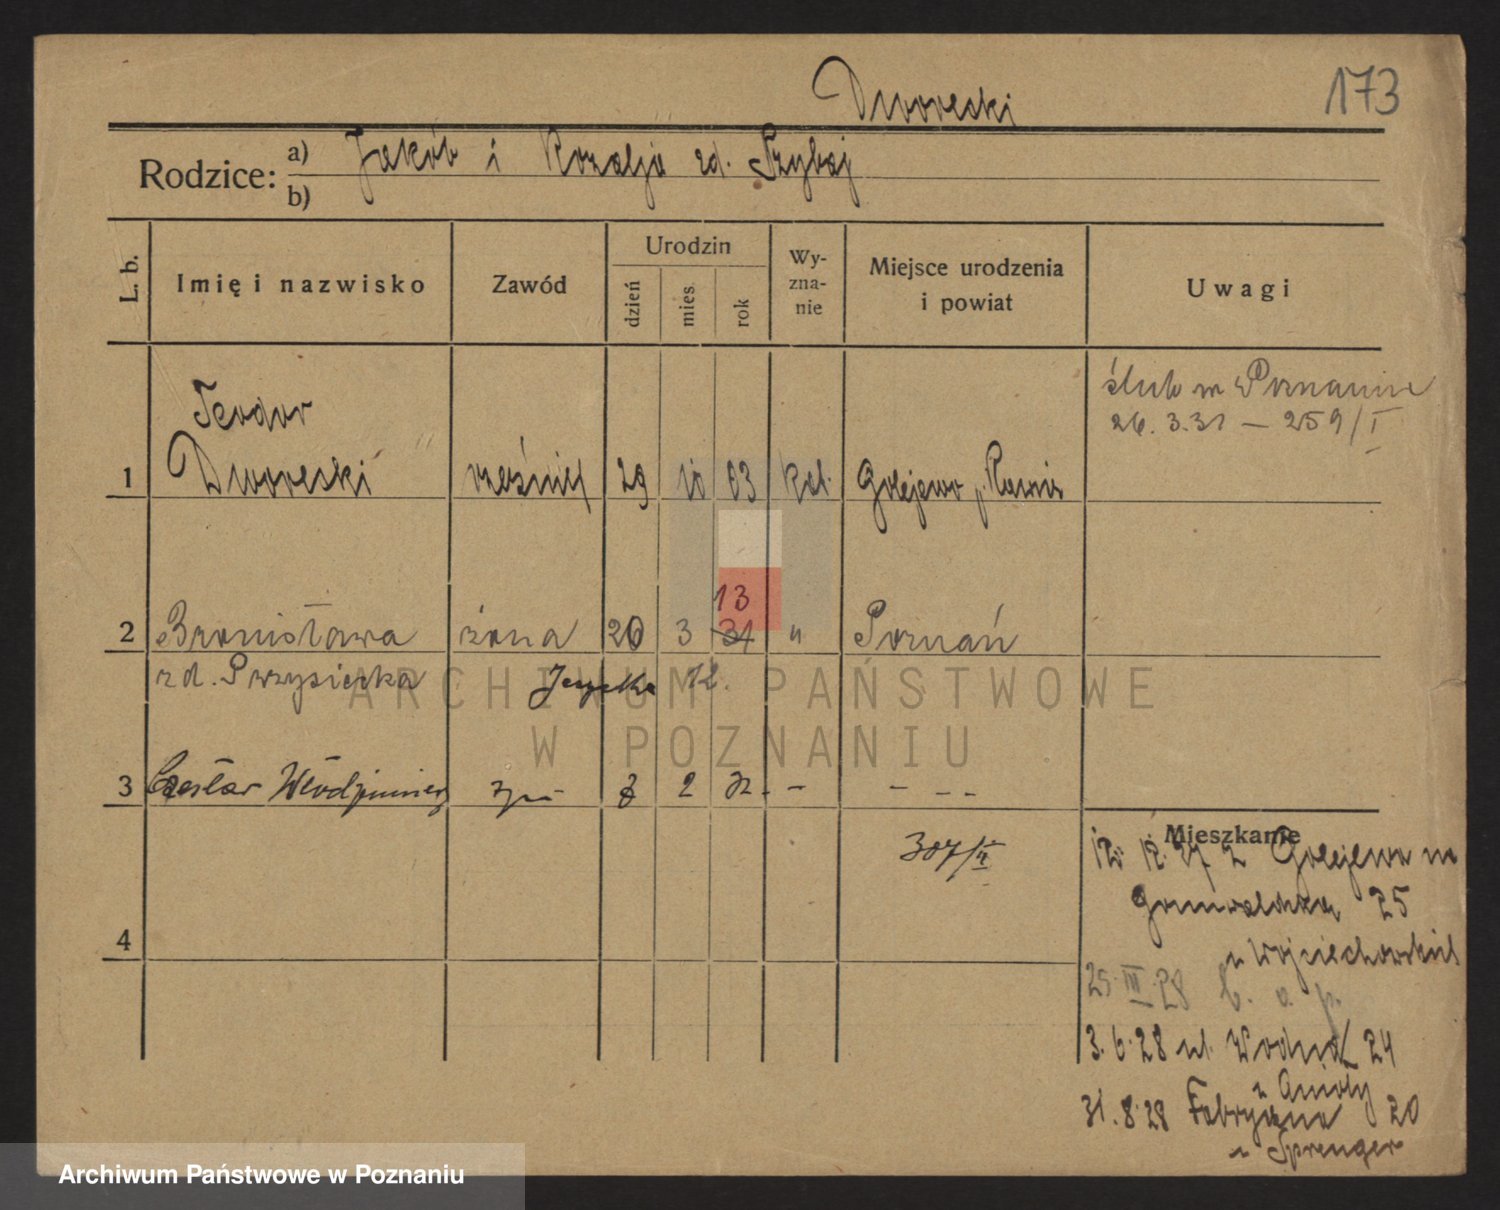 Dworecki
173
Rodzice: a) Jakób i Rozalja zd. Szybaj
b)
L. b. Imię i nazwisko Zawód Urodzin dzień mies. rok Wy-zna-nie Miejsce urodzenia i powiat Uwagi
ślub w Poznaniu
26. 3. 31 — 259/I
Teodor
1 Dworecki rzeźnik 29 10 03 kat. Golejewo p. Rawicz
13
2 Bronisława żona 20 3 31 " Poznań
zd. Przysiecka
3 Czesław Włodzimierz syn 2 32. - - - -
Mieszkanie
307/II
12. 12. 27 z Golejewa na
Grunwaldzka 25
u Wojciechowskich
4
25. III. 28 b. a. p.
3. 6. 28 ul. Wodna 24
u Anioły
31. 8. 28 Fabryczna 20
u Sprenger
ARCHIWUM PAŃSTWOWE
W POZNANIU
Archiwum Państwowe w Poznaniu